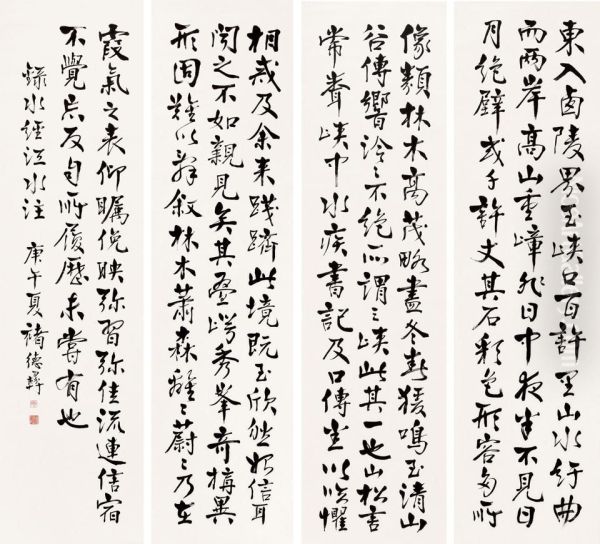 東入西陵界至峽口百許里山水紆曲
而兩岸高山重嶂非日中夜半不見日
月絕壁或千許丈其石彩色形容多所
像類林木高茂略盡冬春猨鳴至清山
谷傳響泠泠不絕所謂三峽此其一也山松言
常聞峽中水疾書記及口傳悉以臨懼
相戒及余來踐躋此境既至欣然始信耳
聞之不如親見矣其疊崿秀峯奇構異
形固難以辭敘林木蕭森離離蔚蔚乃在
霞氣之表仰矚俛映彌習彌佳流連信宿
不覺忘反目所履歷未嘗有也
錄水經江水注 庚午夏褚德彝